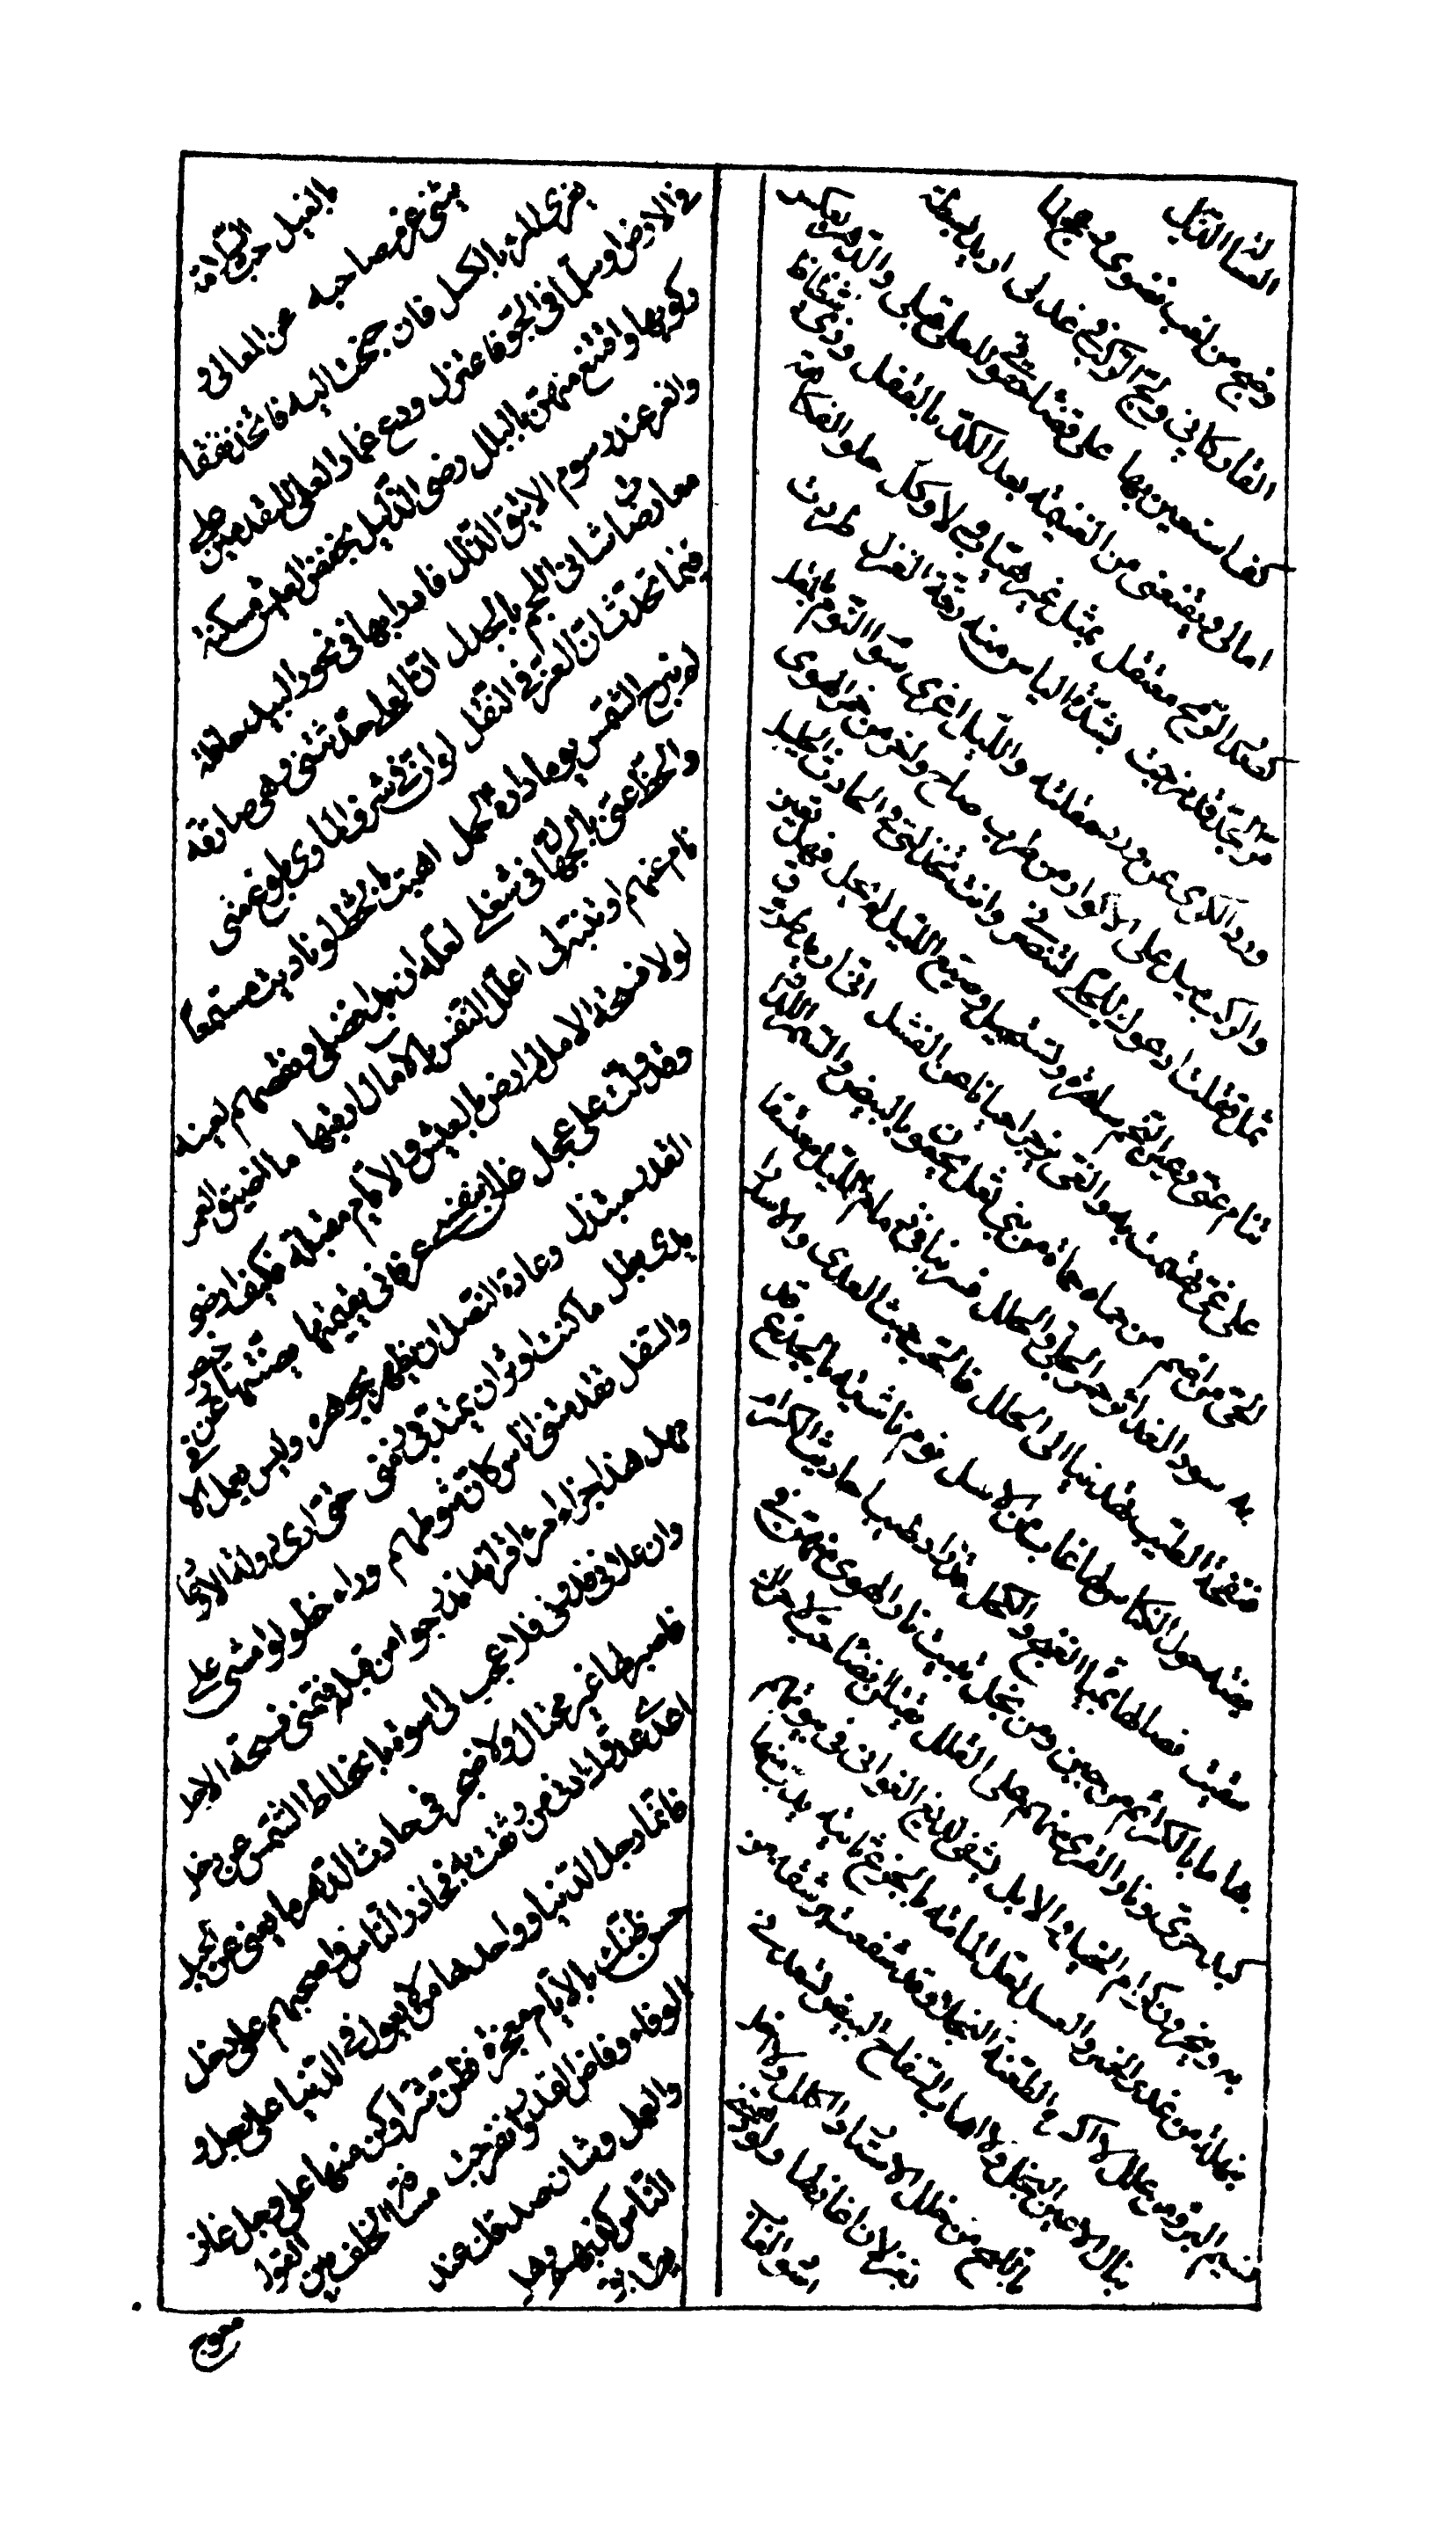 العسالة الذبل
وضج من لغب نضوي وعج لما
القا ركابي ولج الركب في عذلي اريد بسطة
كفا ستعين بها على قضاء حقوق للعلى قبلي والدهر يعكس
امالي ويقنعني من الغنيمة بعد الكد بالقفل وذي شطاط
كصدر الرمح معتقل بمثله غير هياب ولا وكل حلو الفكاهة
مر الجد قد مزجت بشدة الباس منه رقة الغزل طردت
ورد الكرى عن ورد مقلته والليل اغرى سوام النوم بالمقل
والركب ميل على الاكوار من طرب صاح واخر من خمر الهوى
ثمل فقلت ادعوك للجلى لتنصرني وانت تخذلني في الحادث الجلل
تنام عني وعين النجم ساهرة وتستحيل وصبغ الليل لم يحل فهل تعين
على غي هممت به والغي يزجر احيانا عن الفشل اني اريد طروق
الحي من اضم حماه حماة من بني ثعل يحمون بالبيض والسمر اللدان
به سود الغدائر حمر الحلي والحلل فسر بنا في ذمام الليل معتسفا
فنفحة الطيب تهدينا الى الحلل فالحب حيث العدى والاسد را
بضة حول الكناس لها غاب من الاسل نؤم ناشئة بالجزع قد
سقيت نصالها بمياه الغنج والكحل قد زاد طيب احاديث الكرام
بها ما بالكرائم من جبن ومن بخل تبيت نار الهوى منهن في
كبد حرى ونار القرى منهم على القلل يقتلن انضاء حب لا حراك
به وينحرون كرام الخيل والابل يشفى لديغ الغواني في بيوتهم
بنهلة من غدير الخمر والعسل لعل المامة بالجزع ثانية يدب منها
نسيم البرء في عللي لا اكره الطعنة النجلاء قد شفعت برشقة من
نبال الاعين النجل ولا اهاب الصفاح البيض تسعدني
باللمح من خلل الاستار والكلل ولا اخل
بغزلان اغازلها ولو دهتني
اسود الغاب
بالغيل حب السلامة
يثني عزم صاحبه عن المعالي و
يغري المرء بالكسل فان جنحت اليه فاتخذ نفقا
في الارض او سلما في الجو فاعتزل ودع غمار العلى للمقدمين على
ركوبها واقتنع منهن بالبلل رضى الذليل بخفض العيش مسكنة
والعز عند رسوم الاينق الذلل فادرا بها في نحور البيد حافلة
معارضات مثاني اللجم بالجدل ان العلى حدثتني وهي صادقة
فيما تحدث ان العز في النقل لو ان في شرف الماوى بلوغ منى
لم تبرح الشمس يوما دارة الحمل اهبت بالحظ لو ناديت مستمعا
والحظ عني بالجهال في شغل لعله ان بدا فضلي ونقصهم لعينه
نام عنهم او تنبه لي اعلل النفس بالامال ارقبها ما اضيق العيش
لولا فسحة الامل لم ارض بالعيش والايام مقبلة فكيف ارضى
وقد ولت على عجل غالى بنفسي عرفاني بقيمتها فصنتها عن رخيص
القدر مبتذل وعادة النصل ان يزهى بجوهره وليس يعمل الا في
يدي بطل ما كنت اوثر ان يمتد بي زمني حتى ارى دولة الاوغاد
والسفل تقدمتني اناس كان شوطهم وراء خطوي لو امشي على
مهل هذا جزاء امرء اقرانه درجوا من قبله فتمنى فسحة الاجل
وان علاني من دوني فلا عجب لي اسوة بانحطاط الشمس عن زحل
فاصبر لها غير محتال ولا ضجر في حادث الدهر ما يغني عن الحيل
اعدى عدوك ادنى من وثقت به فحاذر الناس واصحبهم على دخل
فانما رجل الدنيا وواحدها من لا يعول في الدنيا على رجل و
حسن ظنك بالايام معجزة فظن شرا وكن منها على وجل غاض
الوفاء وفاض الغدر وانفرجت مسافة الخلف بين القول
والعمل وشان صدقك عند
الناس كذبهم وهل
يطابق
معوج